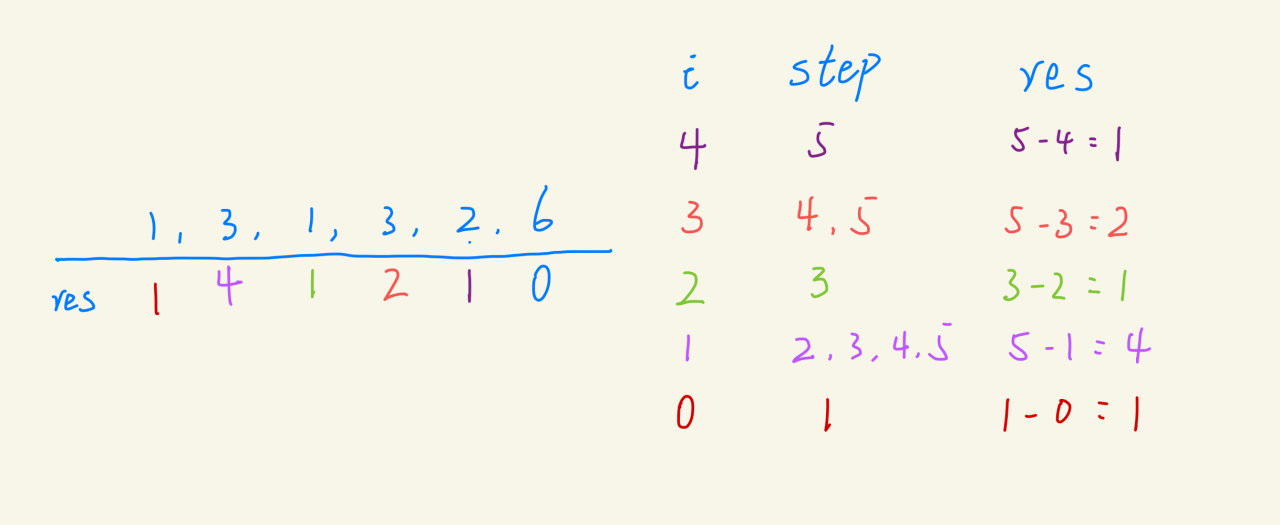 1, 3, 1, 3, 2. 6
res 1 4 1 2 1 0
i step res
4 5 5-4=1
3 4.5 5-3=2
2 3 3-2=1
1 2.3,4.5 5-1=4
0 1 1-0=1